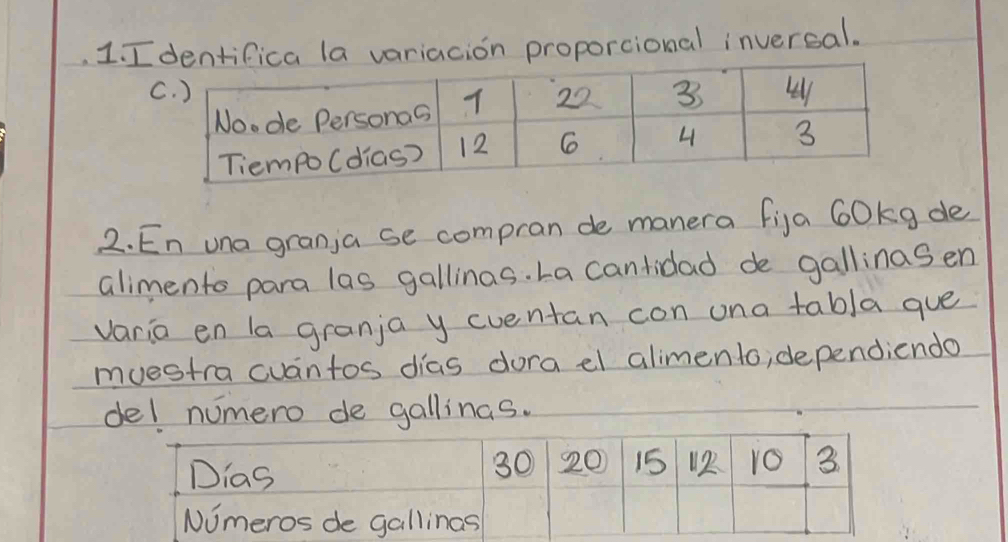 1. Identifica la variación proporcional inversal.
c.)
No. de Personas 1 22 3 4
Tiempo (días) 12 6 4 3
2. En una granja se compran de manera fija 60kg de
alimento para las gallinas. La cantidad de gallinas en
varía en la granja y cuentan con una tabla que
muestra cuántos días dura el alimento, dependiendo
del número de gallinas.
Días 30 20 15 12 10 3
Números de gallinas